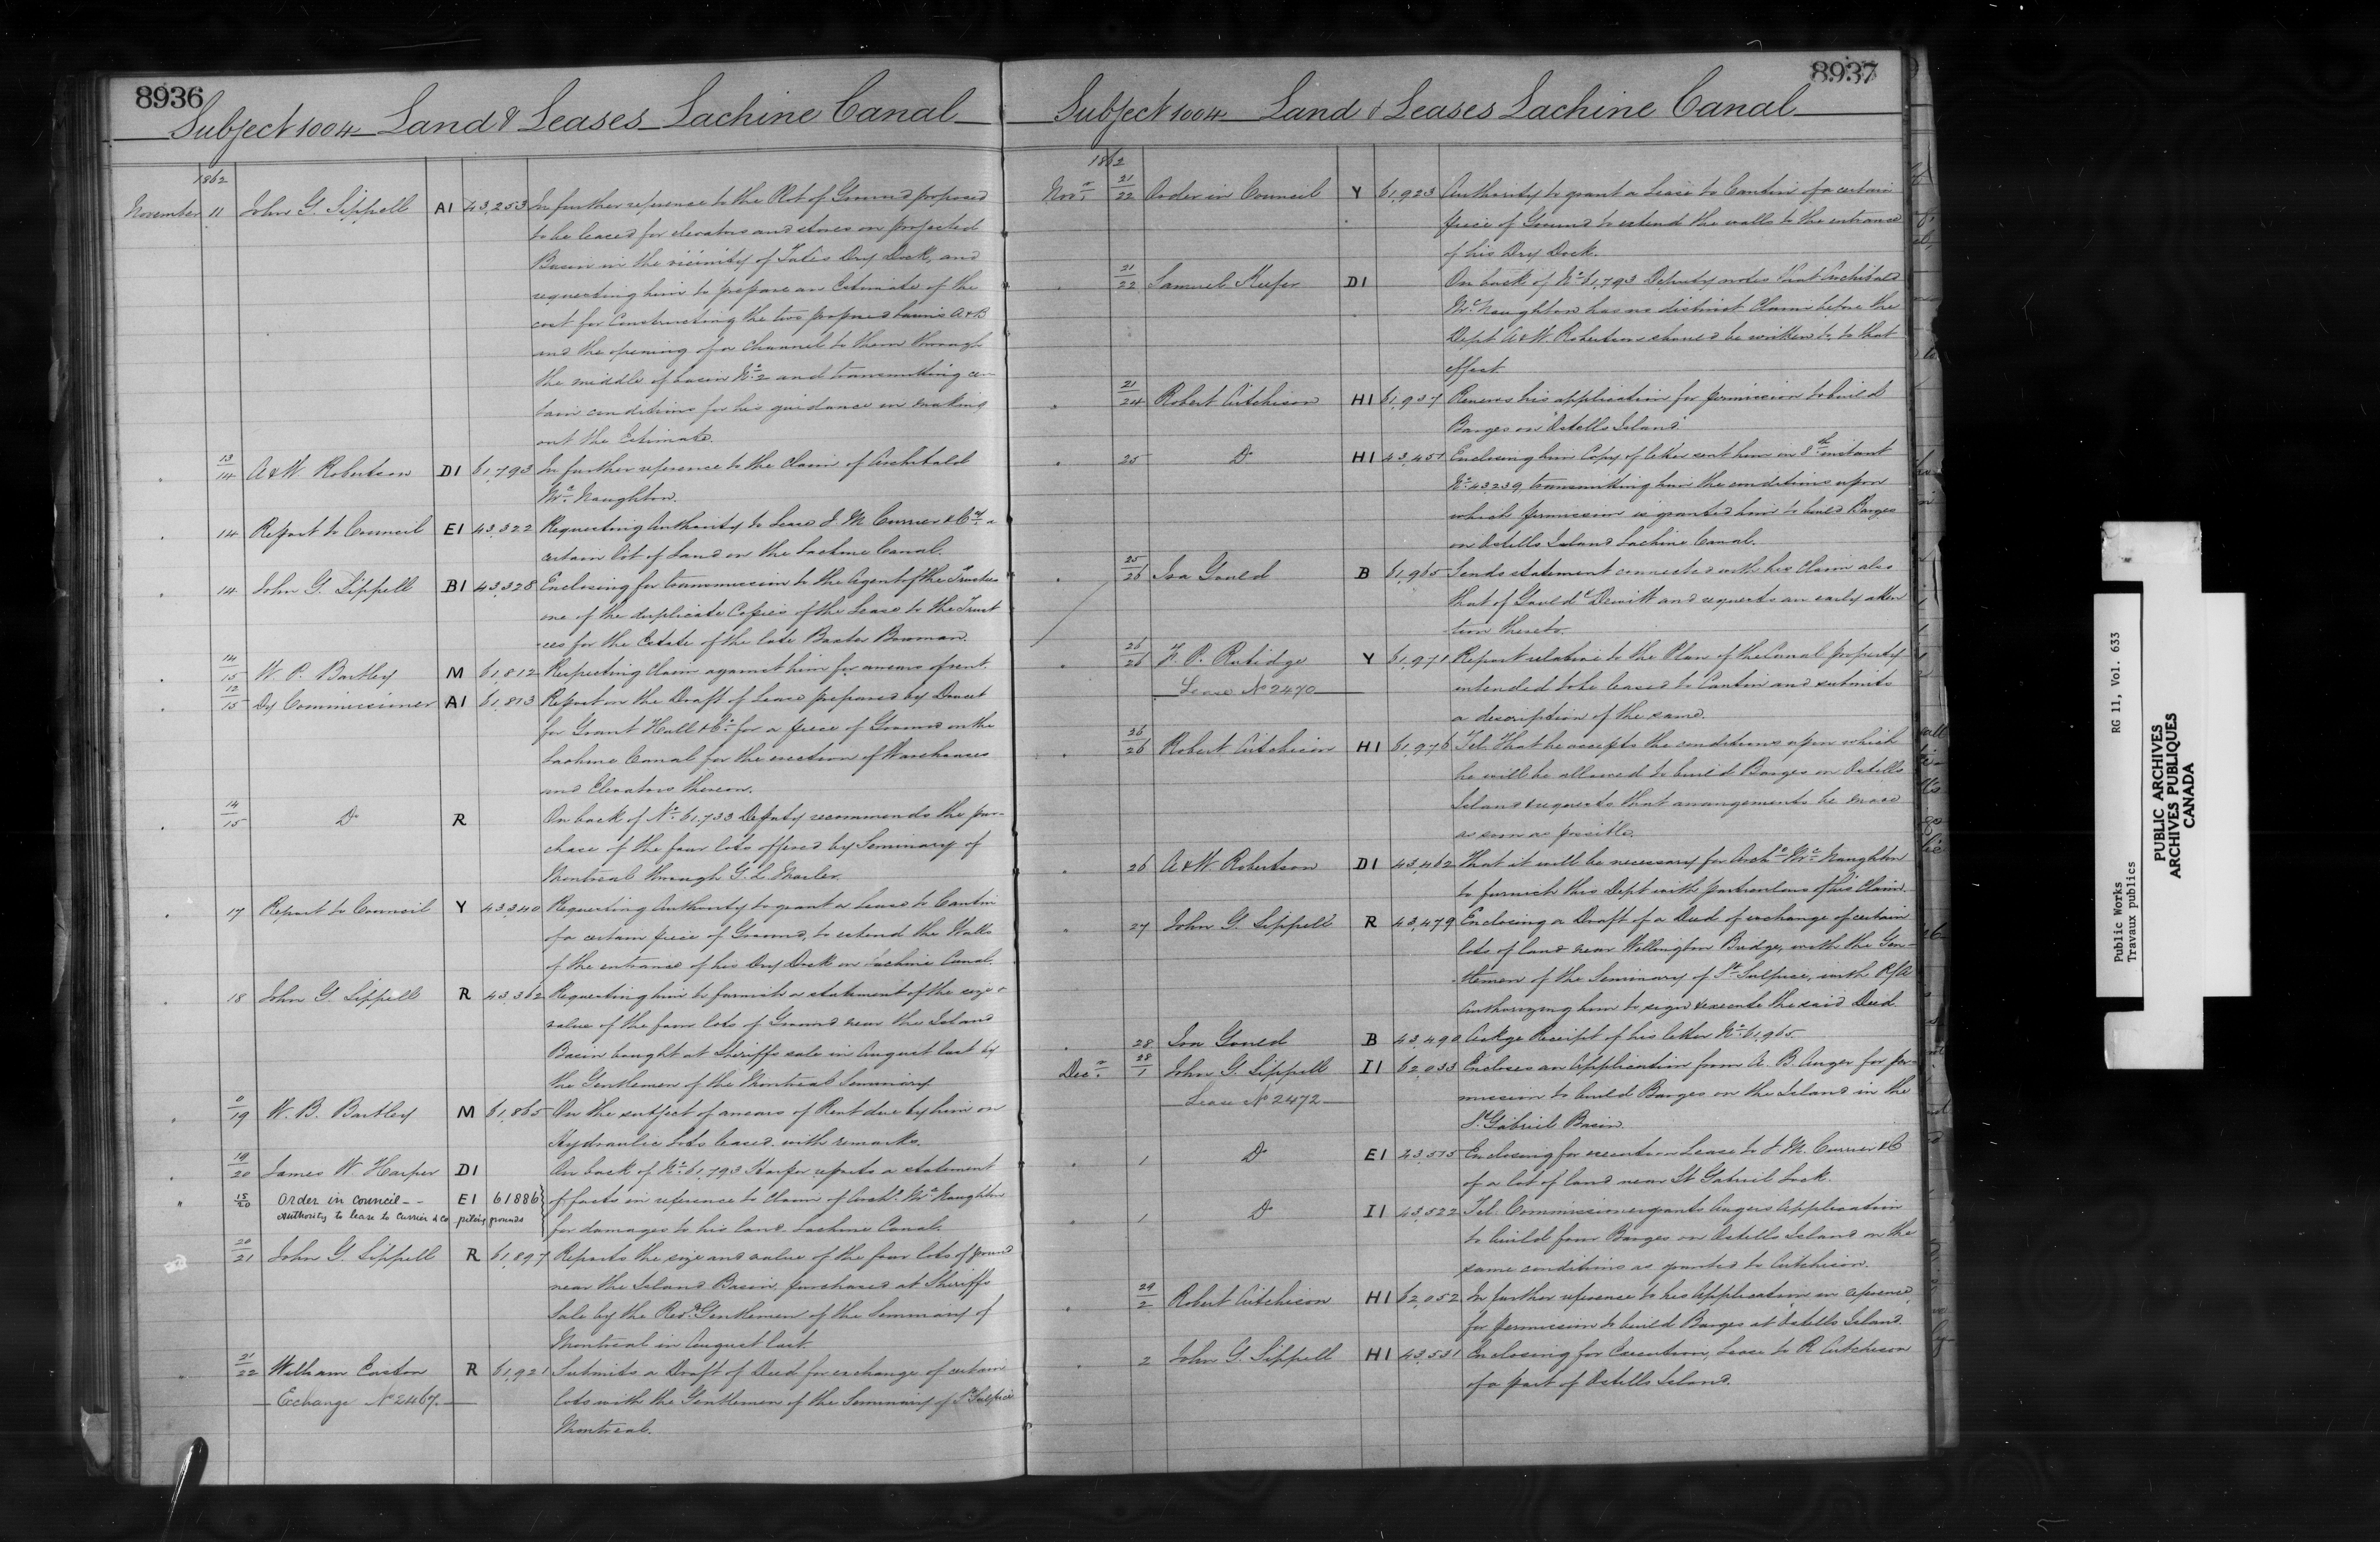 8936
Subject 1004 Land & Leases Lachine Canal
1862
November 11 John G. Sippell A1 43,253 In further reference to the Plot of Ground proposed
to be leased for elevators and stores on projected
Basin in the vicinity of Tate's Dry Dock, and
requesting him to prepare an Estimate of the
cost for Constructing the two proposed basins A & B
and the opening of a Channel to them through
the middle of basin No. 2 and transmitting cer-
tain conditions for his guidance in making
out the Estimate.
13/14 A & W Robertson D1 61,793 In further reference to the Claim of Archibald
McNaughton.
14 Report to Council E1 43,322 Requesting Authority to Lease J. M. Currier & Co. a
certain lot of Land on the Lachine Canal.
14 John G. Sippell B1 43,328 Enclosing for transmission to the Agent of the Trustees
one of the duplicate Copies of the Lease to the Trust
ees for the Estate of the late Baxter Bowman.
14/15 W. P. Bartley M 61,812 Respecting Claim against him for arrears of rent.
12/15 Dy Commissioner A1 61,813 Report on the Draft of Lease prepared by
for Grant Hall & Co. for a piece of Ground on the
Lachine Canal for the erection of Warehouses
and Elevators thereon.
14/15 Do R On back of No. 61,733 Deputy recommends the pur-
chase of the four lots offered by Seminary of
Montreal through G. L. Marler.
17 Report to Council Y 43,340 Requesting Authority to grant a Lease to Cantin
of a certain piece of Ground, to extend the Walls
of the entrance of his Dry Dock on Lachine Canal.
18 John G. Sippell R 43,362 Requesting him to furnish a statement of the size &
value of the four lots of Ground near the Island
Basin bought at Sheriffs sale in August last by
the Gentlemen of the Montreal Seminary
0/19 W. B. Bartley M 61,865 On the subject of arrears of Rent due by him on
Hydraulic Lots leased with remarks.
19/20 James W Harper D1 On back of No. 61,793 Harper reports a statement
15/20 Order in Council E1 61886 of facts in reference to Claim of Archd. McNaughton
Authority to lease to Currier & Co piling grounds for damages to his land Lachine Canal.
20/21 John G. Sippell R 61,897 Reports the size and value of the four lots of ground
near the Island Basin, purchased at Sheriffs
Sale by the Revd. Gentlemen of the Seminary of
Montreal in August last.
21/22 William Easton R 61,921 Submits a Draft of Deed for exchange of certain
Exchange No 2467. lots with the Gentlemen of the Seminary of St Sulpice
Montreal.
8937
Subject 1004 Land & Leases Lachine Canal
1862
Novr. 21/22 Order in Council Y 61,923 Authority to grant a Lease to Cantin of a certain
piece of Ground to extend the walls to the entrance
of his Dry Dock.
21/22 Samuel Keefer D1 On back of No. 61,793 Deputy notes that Archibald
McNaughton has no distinct Claim before the
Dept. A & W. Robertson should be written to, to that
effect.
21/24 Robert Aitchison H1 61,937 Renews his application for permission to build
Barges on Ostells Island
25 Do H1 43,451 Enclosing him Copy of letter sent him on 8th instant
No. 43239, transmitting him the conditions upon
which permission is granted him to build Barges
on Ostells Island Lachine Canal.
25/26 Ira Gould B 61,965 Sends statement connected with his Claim also
that of Gould & Dewitt and requests an early atten
tion thereto.
26/26 F. P. Rubidge Y 61,971 Report relative to the Plan of the Canal property
Lease No 2470 intended to be leased to Cantin and submits
a description of the same.
26/26 Robert Aitchison H1 61,976 Tel. That he accepts the conditions upon which
he will be allowed to build Barges on Ostells
Island & requests that arrangements be made
as soon as possible.
26 A & W. Robertson D1 43,462 That it will be necessary for Archd. McNaughton
to furnish this Dept with particulars of his Claim.
27 John G. Sippell R 43,479 Enclosing a Draft of a Deed of exchange of certain
lots of land near Wellington Bridge, with the Gen-
tlemen of the Seminary of St Sulpice, with P/A
Authorizing him to sign & execute the said Deed.
28 Ira Gould B 43,490 Ackge Receipt of his letter No. 61,965.
Decr. 28/1 John G. Sippell I1 62,033 Encloses an Application from A. B. Auger for per-
Lease No 2472 mission to build Barges on the Island in the
St. Gabriel Basin.
1 Do E1 43,515 Enclosing for execution Lease to J. M. Currier & Co
of a lot of land near St Gabriel Lock.
1 Do I1 43,522 Tel. Commissioner grants Augers Application
to build four Barges on Ostells Island on the
same conditions as granted to Aitchison.
29/2 Robert Aitchison H1 62,052 In further reference to his Application
for permission to build Barges at Ostells Island.
2 John G. Sippell H1 43,531 Enclosing for Execution, Lease to R Aitchison
of a part of Ostells Island.
Public Works RG 11, Vol. 633
Travaux publics
PUBLIC ARCHIVES
ARCHIVES PUBLIQUES
CANADA